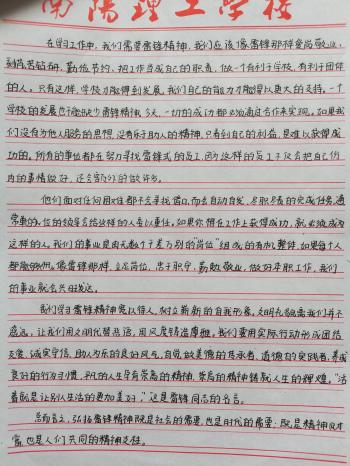 南阳理工学校
在学习工作中，我们需要雷锋精神，我们应该像雷锋那样爱岗敬业，
刻苦钻研，勤俭节约，把工作当成自己的职责，做一个有利于学校，有利于团体
的人，只有这样，学校才能得到发展，我们自己的能力才能得以更大的支持。一个
学校的发展也不能缺少雷锋精神，今天，一切的成功都必须通过合作来实现。如果我
们没有为他人服务的思想，没有乐于助人的精神，只看到自己的利益，是难以获得成
功的。所有的单位都在努力寻找雷锋式的员工，因为这样的员工不仅会把自己份
内的事情做好，还会额外的做许多。
他们面对任何困难都不会寻找借口，而会自动自发，尽职尽责的完成任务，通
常重要的位的领导会给这样的人委以重任。如果你想在工作上获得成功，就必须成为
这样的人。我们的事业是由无数个千差万别的岗位"组成的有机整体，如果每个人
都能够像雷锋那样，立足岗位，忠于职守，勤勉敬业，做好本职工作，我们
的事业就会兴旺发达。
我们学习雷锋精神宽以待人，树立崭新的自我形象，文明礼貌离我们并不
遥远，让我们用文明代替恶语，用风度铸造儒雅。我们要用实际行动形成团结
友爱，诚实守信，助人为乐的良好风气，自觉做美德的传承者，道德的实践者，养成
良好的行为习惯，平凡的人生孕育崇高的精神，崇高的精神铸就人生的辉煌。"活
着就是让别人生活的更加美好，"这是雷锋同志的名言。
总而言之，弘扬雷锋精神既是社会的需要，也是时代的需要；既是精神财
富，也是人们共同的精神支柱。